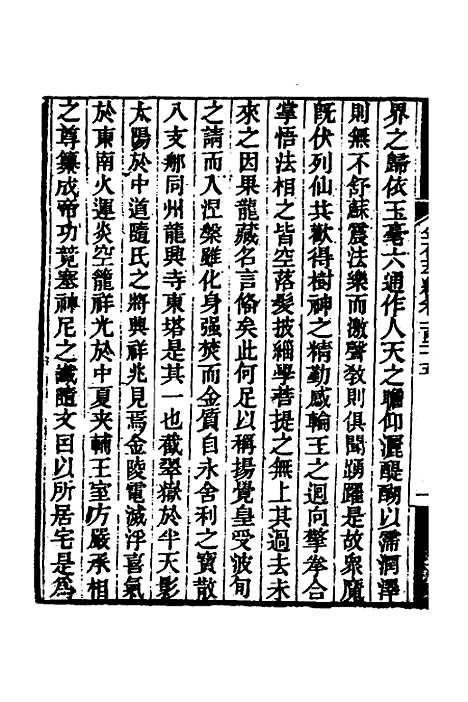 界之歸依玉毫六通作人天之瞻仰灑醍醐以濡潤澤
則無不舒蘇震法樂而激聲敎則俱聞踴躍是故眾魔
旣伏列仙共歡得樹神之精勤感輪王之迴向擎拳合
掌悟法相之皆空落髮披緇學菩提之無上其過去未
來之因果龍藏名言偹矣此何足以稱揚覺皇受波旬
之請而入涅槃雖化身强焚而金質自永舍利之寶散
入支那同州龍興寺東塔是其一也截翠嶽於半天影
太陽於中道隨氏之將興祥兆見焉金陵電滅浮喜氣
於東南火運炎空籠祥光於中夏夾輔王室方嚴承相
之尊纂成帝功竟塞神尼之讖驗文曰以所居宅是爲